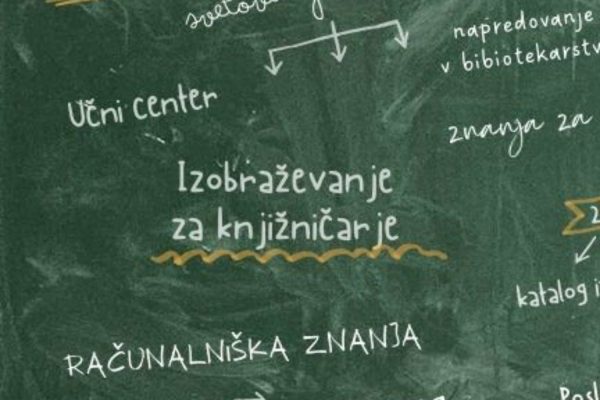 napredovanje
v bibiotekarstv
Učni center
znanja za
Izobraževanje
za knjižničarje
katalog i
RAČUNALNIŠKA ZNANJA